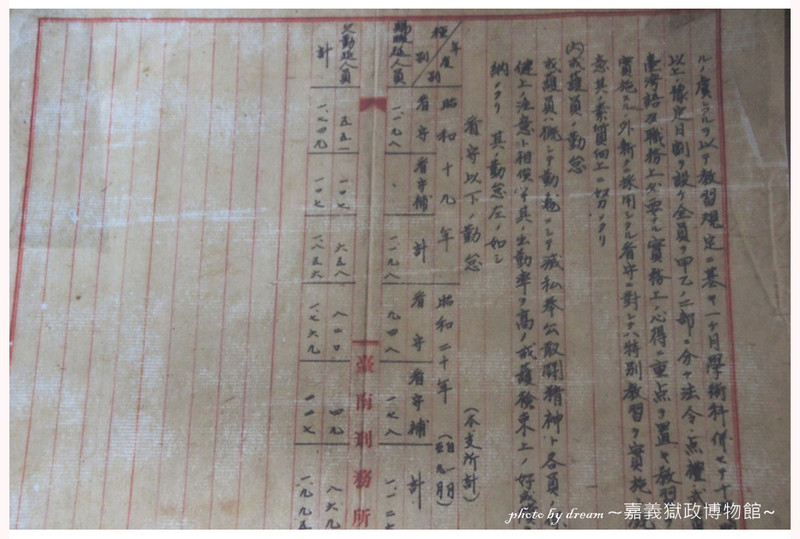 以テ教習規定ニ基キ一ケ月學術科併セテ
以上ノ豫定日割ヲ設ケ全員ヲ甲乙ノ二部ニ分チ法令、点檢、
臺湾語及職務上必要ナル實務上ノ心得ニ重点ヲ置キ教習
實施スル外新ニ採用シタル看守ニ對シテハ特別教習ヲ實施
意其ノ素質向上ニ努メタリ
戒護員ノ勤怠
戒護員ハ概シテ勤勉ニシテ滅私奉公敢鬪精神ト各員ノ
健上ノ注意ト相俟ツテ其ノ出勤率ヲ高メ戒護檢束上ノ好成
納メタリ 其ノ勤怠左ノ如シ
看守以下ノ勤怠 (本支所計)
種別 年度別 昭和十九年 昭和二十年(自一月至九月)
看守 看守補 計 看守 看守補 計
延人員 一、一九八 、 一一九八 九四八 一七八
欠勤延人員 五五一 一〇七 六五八 八二〇 四九 八六九
計 一、七四九 一〇七 一、八五六 一、七六九 一、九九五
臺南刑務所
photo by dream ～嘉義獄政博物館～